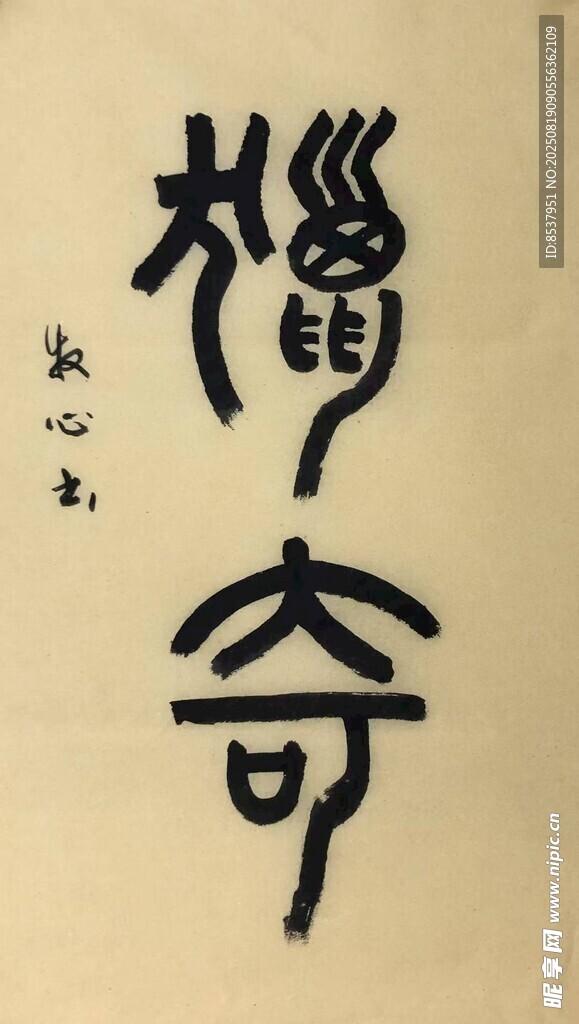 獵奇
牧心书
ID:8537951 NO:20250819090556362109
昵享网 www.nipic.cn